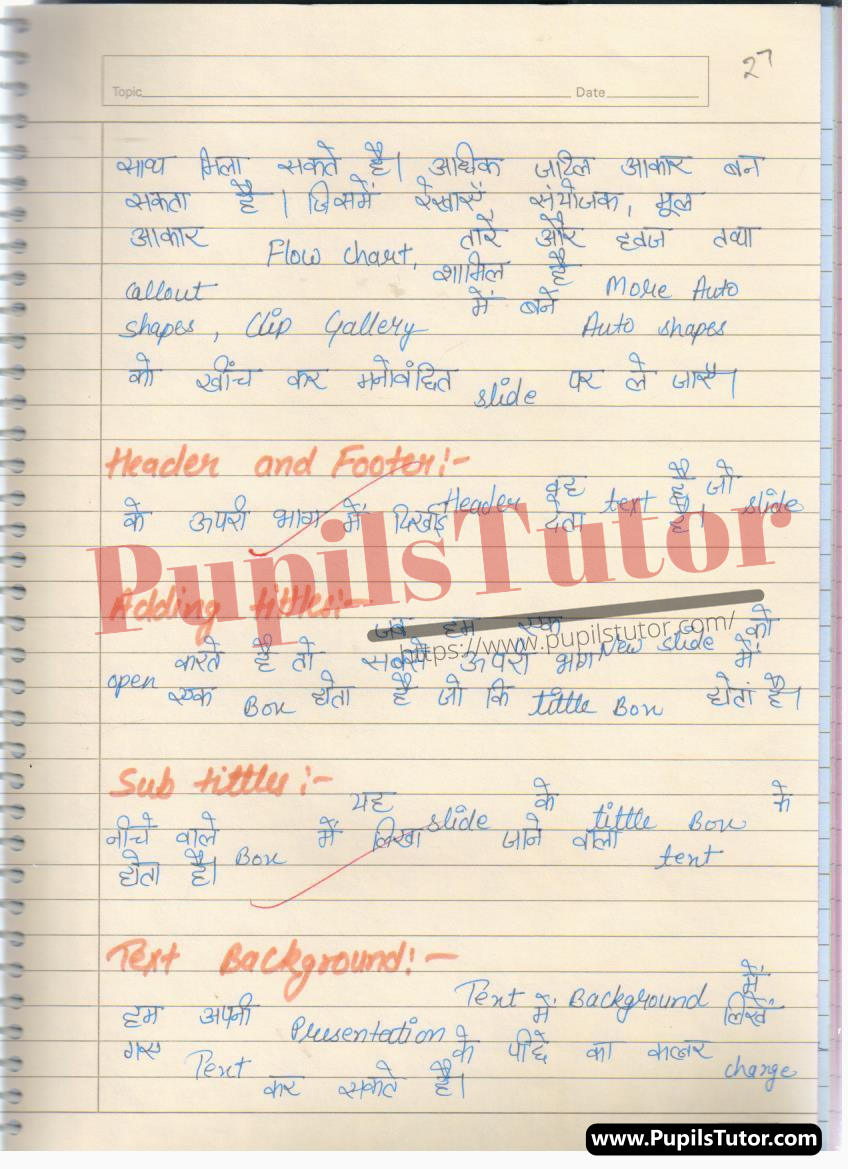 27
Topic Date
साथ मिला सकते है। अधिक जटिल आकार बन
सकता है। जिसमें रेखाएँ, संयोजक, मूल
आकार Flow chart, तारें और ध्वज तथा
callout शामिल है More Auto
shapes, Clip Gallery में बने Auto shapes
को खींच कर मनोवांछित slide पर ले जाएँ।
Header and Footer:-
Header वह text है जो slide
के ऊपरी भाग में दिखाई देता है।
PupilsTutor
Adding tittles:-
जब हम एक New slide को
https://www.pupilstutor.com/
open करते है तो सबसे ऊपरी भाग में
एक Box होता है जो कि tittle Box होता है।
Sub tittles:-
यह slide के tittle Box के
नीचे वाले Box में लिखा जाने वाला text
होता है।
Text Background:-
Text Background में
हम अपनी Presentation में लिखे
गए Text के पीछे का कलर change
कर सकते है।
www.PupilsTutor.com